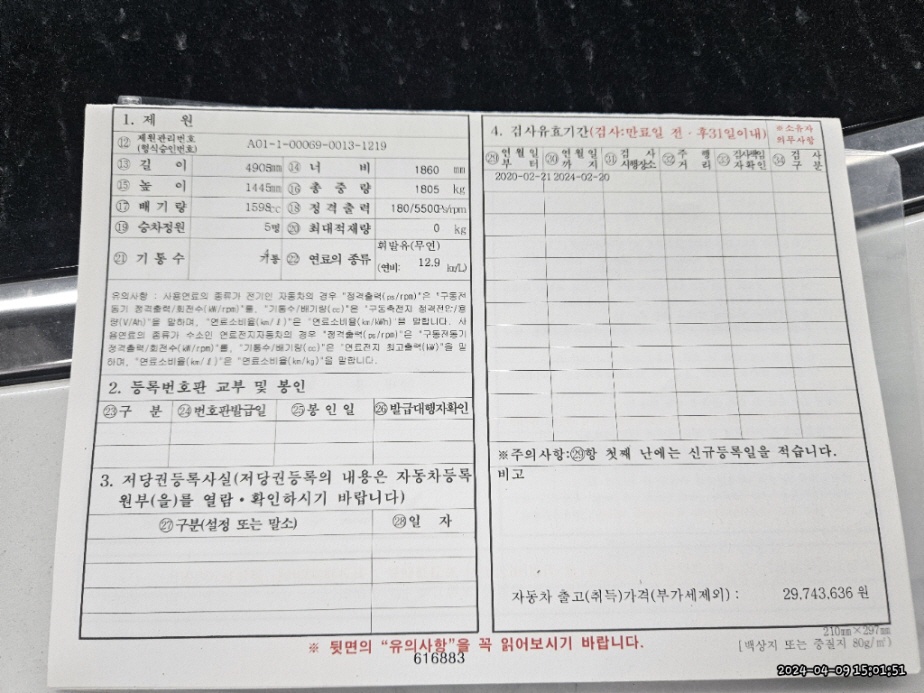 1. 제 원
⑫ 제원관리번호
(형식승인번호)
A01-1-00069-0013-1219
⑬ 길 이 4905mm ⑭ 너 비 1860 mm
⑮ 높 이 1445mm ⑯ 총 중 량 1805 kg
⑰ 배 기 량 1598cc ⑱ 정 격 출 력 180/5500Ps/rpm
⑲ 승차정원 5명 ⑳ 최대적재량 0 kg
㉑ 기 통 수 4기통 ㉒ 연료의 종류 휘발유(무연)
(연비: 12.9 km/L)
유의사항 : 사용연료의 종류가 전기인 자동차의 경우 "정격출력(ps/rpm)"은 "구동전
동기 정격출력/회전수(kW/rpm)"를, "기통수/배기량(cc)"은 "구동축전지 정격전압/용
량(V/Ah)"을 말하며, "연료소비율(km/ℓ)"은 "연료소비율(km/kWh)"을 말합니다. 사
용연료의 종류가 수소인 연료전지자동차의 경우 "정격출력(ps/rpm)"은 "구동전동기
정격출력/회전수(kW/rpm)"를, "기통수/배기량(cc)"는 "연료전지 최고출력(kW)"을 말
하며, "연료소비율(km/ℓ)"은 "연료소비율(km/kg)"을 말합니다.
2. 등록번호판 교부 및 봉인
㉓구 분 ㉔번호판발급일 ㉕봉 인 일 ㉖발급대행자확인
3. 저당권등록사실(저당권등록의 내용은 자동차등록
원부(을)를 열람・확인하시기 바랍니다)
㉗구분(설정 또는 말소) ㉘일 자
4. 검사유효기간(검사:만료일 전・후31일이내)
※소유자
의무사항
㉙연월일부터 ㉚연월일까지 ㉛검사시행장소 ㉜주행거리 ㉝검사책임자확인 ㉞검사구분
2020-02-21 2024-02-20
※주의사항:㉙항 첫째 난에는 신규등록일을 적습니다.
비고
자동차 출고(취득)가격(부가세제외) : 29.743.636 원
210mm×297mm
[백상지 또는 중질지 80g/㎡]
※ 뒷면의 "유의사항"을 꼭 읽어보시기 바랍니다.
616883
2024-04-09 15:01:51